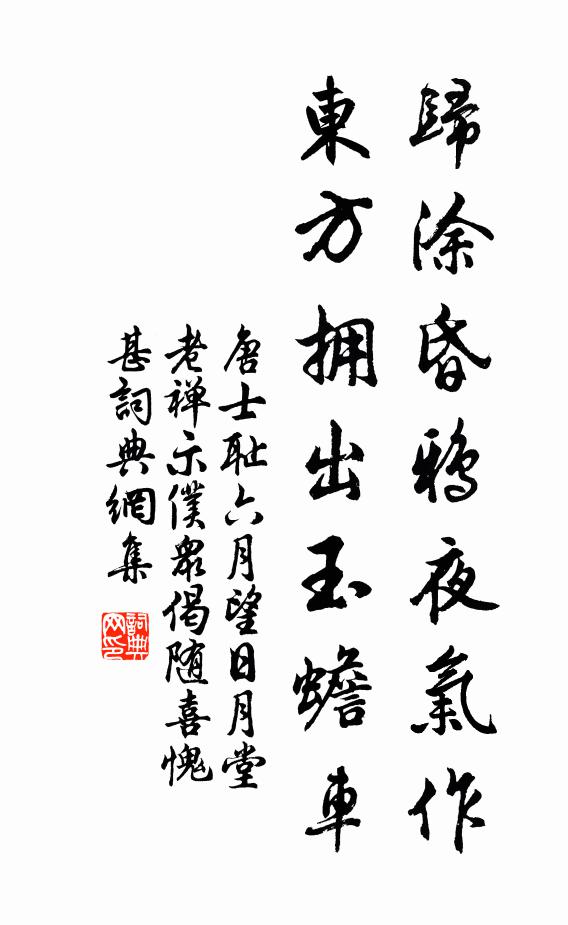 歸涂昏鴉夜氣作
東方拥出玉蟾車
唐士耻六月望日月堂
老禅示僕衆偈随喜愧
甚詞典網集
詞典網印